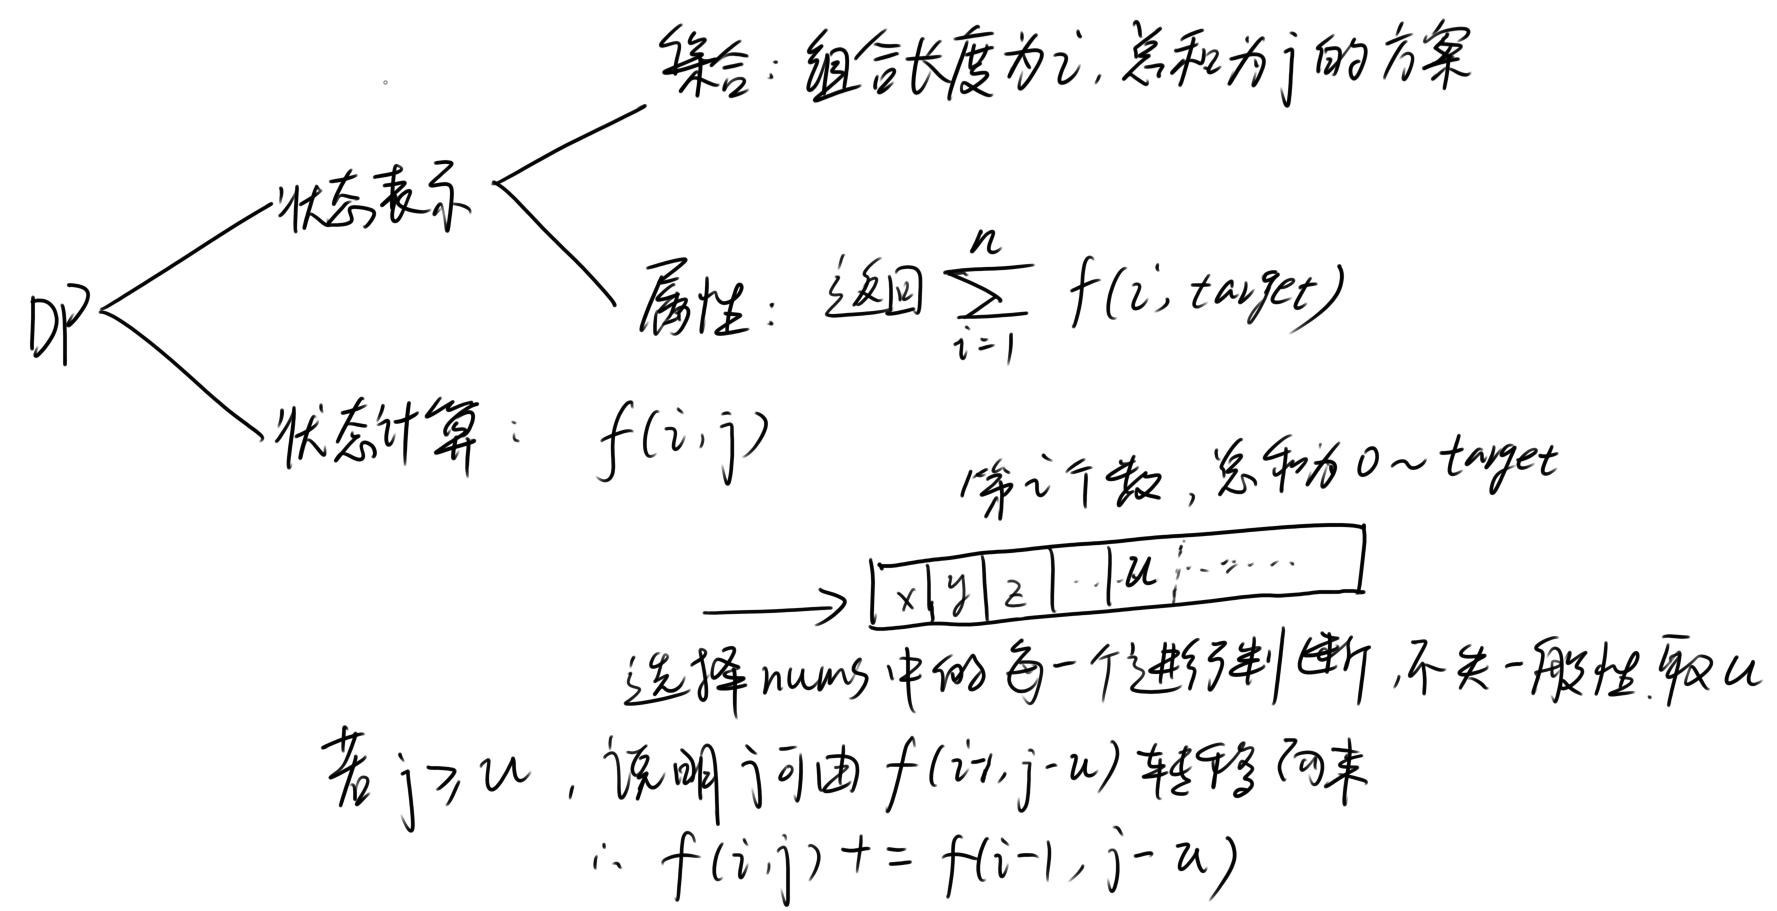 集合：组合长度为i，总和为j的方案
状态表示
DP
属性：返回 n ∑ i=1 f(i, target)
状态计算： f(i, j)
第i个数，总和为0~target
x y z ... u ......
选择nums中的每一个进行判断，不失一般性，取u
若j≥u，说明j可由f(i-1, j-u)转移而来
∴ f(i, j) += f(i-1, j-u)